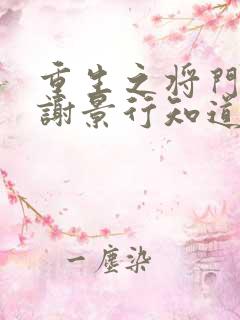 重生之将門
謝景行知道
一塵染